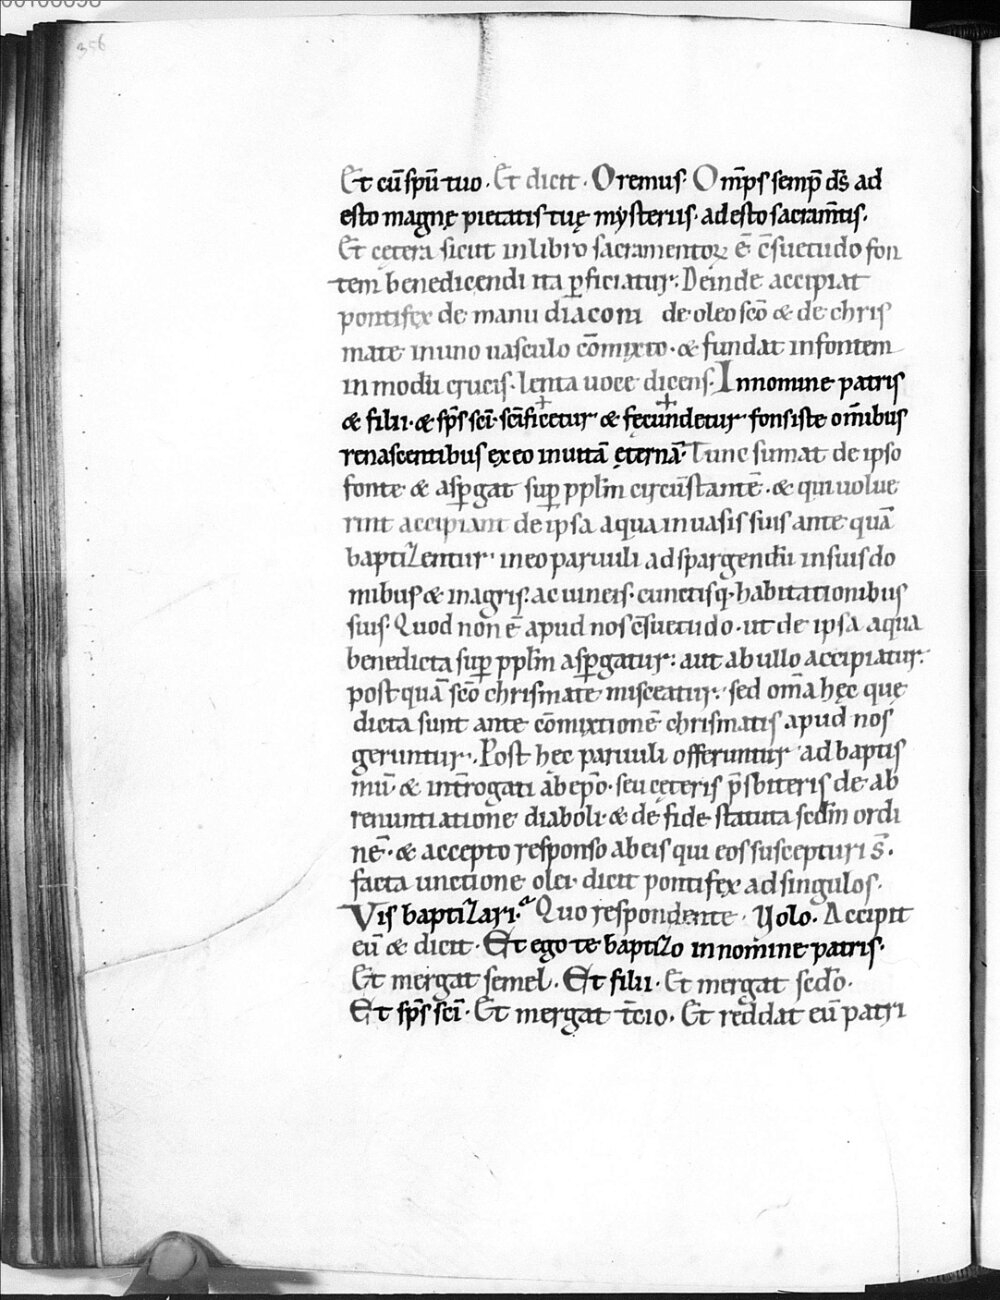 356
Et cū spū tuo. Et dicit. Oremus. Om̄ps semp̄ ds̄ ad
esto magnę pietatis tuę mysteriis. adesto sacram̄tis.
Et cętera sicut in libro sacramentoꝝ ē c̄suetudo fon
tem benedicendi ita ꝑficiatur. Deinde accipiat
pontifex de manu diaconi de oleo sc̄o & de chris
mate in uno uasculo cōmixto. & fundat in fontem
in modū crucis. lenta uoce dicens. In nomine patris
& filii. & sp̄s sc̄i. sc̄ificetur & fecundetur fons iste om̄ibus
renascentibus ex eo in uitā ęternā. Tunc sumat de ipso
fonte & asꝑgat suꝑ ppl̄m circūstantē. & qui uolue
rint accipiant de ipsa aqua in uasis suis ante quā
baptizentur in eo paruuli ad spargendū in suis do
mibus & in agris. ac uineis. cunctisq; habitationibus
suis. Quod non ē apud nos c̄suetudo. ut de ipsa aqua
benedicta suꝑ ppl̄m asꝑgatur: aut ab ullo accipiatur.
post quā sc̄o chrismate misceatur. sed om̄a hęc quę
dicta sunt ante cōmixtionē chrismatis apud nos
geruntur. Post hęc paruuli offeruntur ad baptis
mū. & int̄rogati ab ep̄o. seu cęteris p̄sbiteris de ab
renuntiatione diaboli. & de fide statuta sedm̄ ordi
nē. & accepto responso ab eis qui eos suscepturi s̄.
facta unctione olei dicit pontifex ad singulos.
Vis baptizari. Quo respondente. Uolo. Accipit
eū & dicit. Et ego te baptizo in nomine patris.
Et mergat semel. Et filii. Et mergat sed̄o.
Et sp̄s sc̄i. Et mergat t̄cio. Et reddat eū patri